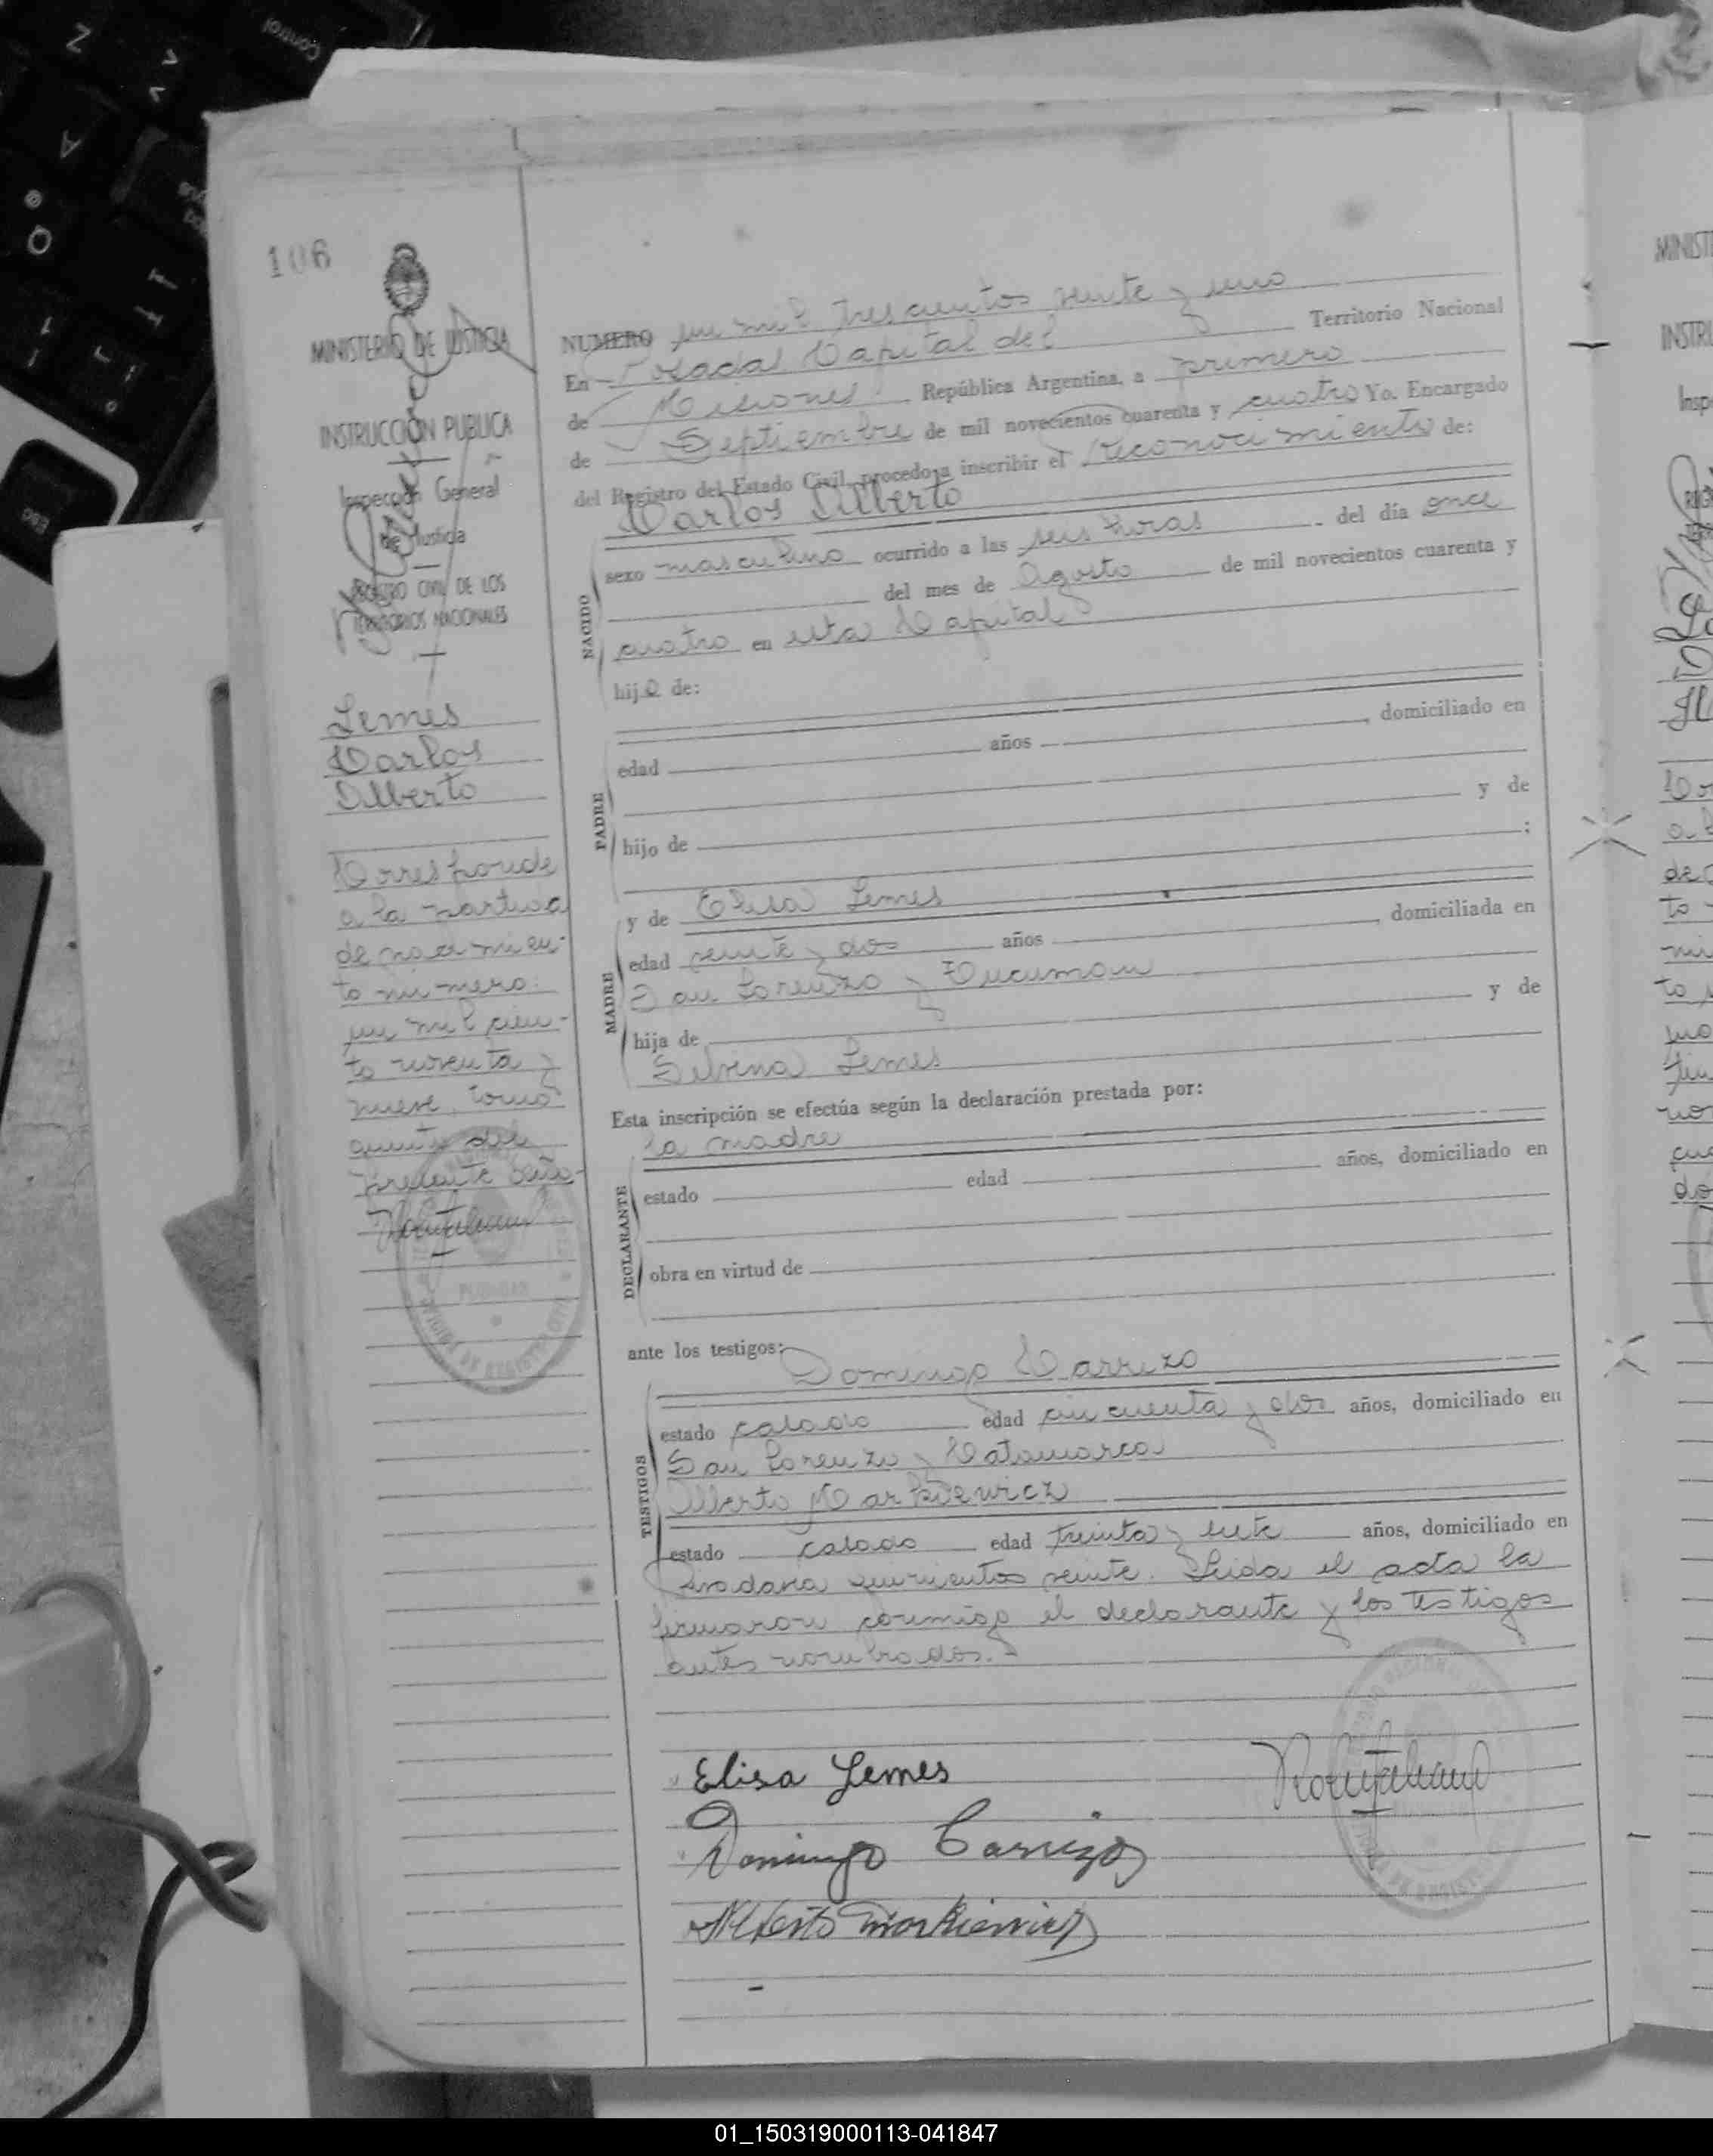 106
MINISTERIO DE JUSTICIA
INSTRUCCION PUBLICA
Inspección General
de Justicia
REGISTRO CIVIL DE LOS
TERRITORIOS NACIONALES
Lemes
Carlos
Alberto
Corresponde
a la partida
de nacimien-
to número:
un mil cien-
to noventa y
nueve, tomo
quinto del
presente año.
NUMERO un mil trescientos veinte y uno
En Posadas Capital del Territorio Nacional
de Misiones República Argentina, a primero
de Septiembre de mil novecientos cuarenta y cuatro Yo. Encargado
del Registro del Estado Civil, procedo a inscribir el reconocimiento de:
Carlos Alberto
NACIDO
sexo masculino ocurrido a las seis horas del día once
del mes de Agosto de mil novecientos cuarenta y
cuatro en esta Capital
hijo de:
PADRE
edad años , domiciliado en
hijo de y de
;
MADRE
y de Elisa Lemes
edad veinte y dos años , domiciliada en
San Lorenzo y Tucuman
hija de y de
Silvina Lemes
Esta inscripción se efectúa según la declaración prestada por:
la madre
DECLARANTE
estado edad años, domiciliado en
obra en virtud de
ante los testigos:
Domingo Carrizo
TESTIGOS
estado casado edad cincuenta y dos años, domiciliado en
San Lorenzo y Catamarca
Alberto Markiewicz
estado casado edad treinta y siete años, domiciliado en
Rivadavia quinientos veinte. Leida el acta la
firmaron conmigo el declarante y los testigos
antes nombrados.-
Elisa Lemes
Domingo Carrizo
Alberto Markiewicz
01_150319000113-041847